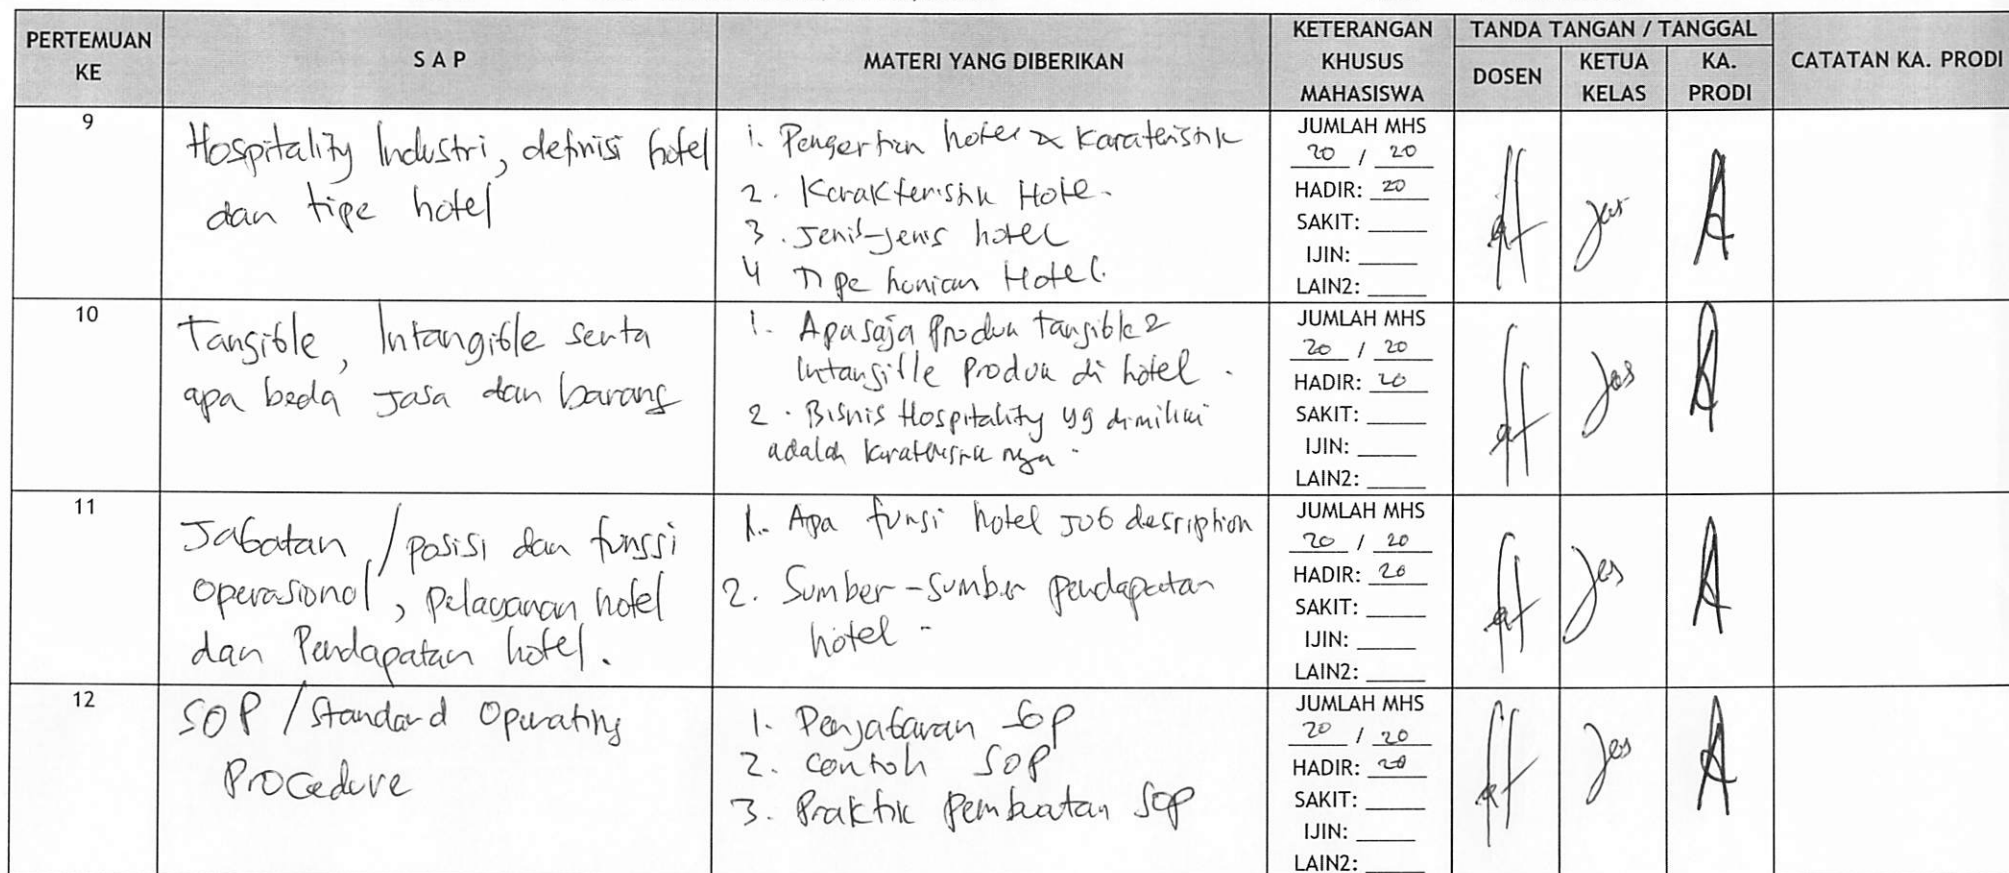 PERTEMUAN KE
S A P
MATERI YANG DIBERIKAN
KETERANGAN KHUSUS MAHASISWA
TANDA TANGAN / TANGGAL
DOSEN
KETUA KELAS
KA. PRODI
CATATAN KA. PRODI
9
Hospitality Industri, definisi hotel
dan tipe hotel
1. Pengertian hotel & Karateristik
2. Karakteristik Hotel.
3. Jenis-jenis hotel
4 Tipe hunian Hotel.
JUMLAH MHS
20 / 20
HADIR: 20
SAKIT:
IJIN:
LAIN2:
10
Tangible, Intangible serta
apa beda Jasa dan barang
1. Apasaja Produk tangible 2
Intangible Produk di hotel.
2. Bisnis Hospitality yg dimiliki
adalah karateristik nya.
JUMLAH MHS
20 / 20
HADIR: 20
SAKIT:
IJIN:
LAIN2:
11
Jabatan / posisi dan fungsi
Operasional, Pelayanan hotel
dan Pendapatan hotel.
1. Apa fungsi hotel Job description
2. Sumber-sumber pendapatan
hotel -
JUMLAH MHS
20 / 20
HADIR: 20
SAKIT:
IJIN:
LAIN2:
12
SOP / Standard Operating
Procedure
1. Penjabaran SOP
2. Contoh SOP
3. Praktik Pembuatan SOP
JUMLAH MHS
20 / 20
HADIR: 20
SAKIT:
IJIN:
LAIN2: